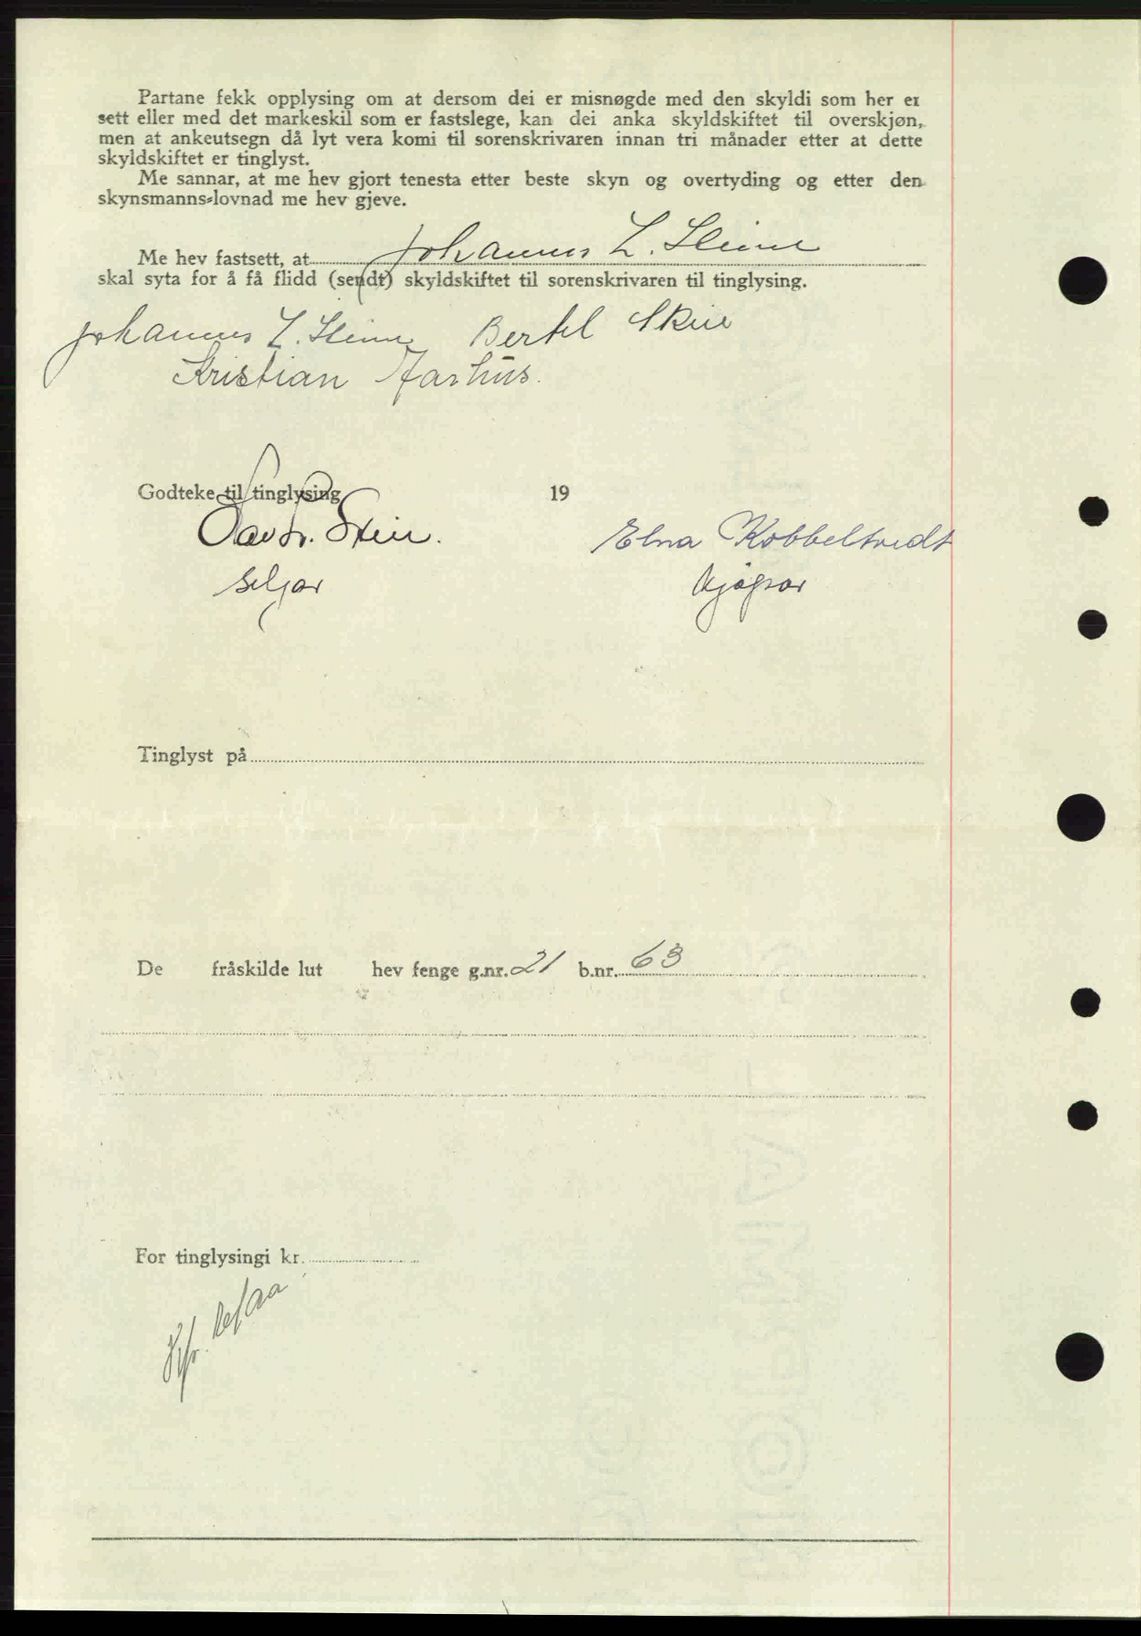 Partane fekk opplysing om at dersom dei er misnøgde med den skyldi som her er
sett eller med det markeskil som er fastslege, kan dei anka skyldskiftet til overskjøn,
men at ankeutsegn då lyt vera komi til sorenskrivaren innan tri månader etter at dette
skyldskiftet er tinglyst.
Me sannar, at me hev gjort tenesta etter beste skyn og overtyding og etter den
skynsmanns-lovnad me hev gjeve.
Me hev fastsett, at Johannes L.
skal syta for å få flidd (sendt) skyldskiftet til sorenskrivaren til tinglysing.
Johannes L. Bertel
Kristian Aarhus.
Godteke til tinglysing 19
Elna Kobbeltvedt
seljar kjøpar
Tinglyst på
De fråskilde lut hev fenge g.nr. 21 b.nr. 63
For tinglysingi kr.